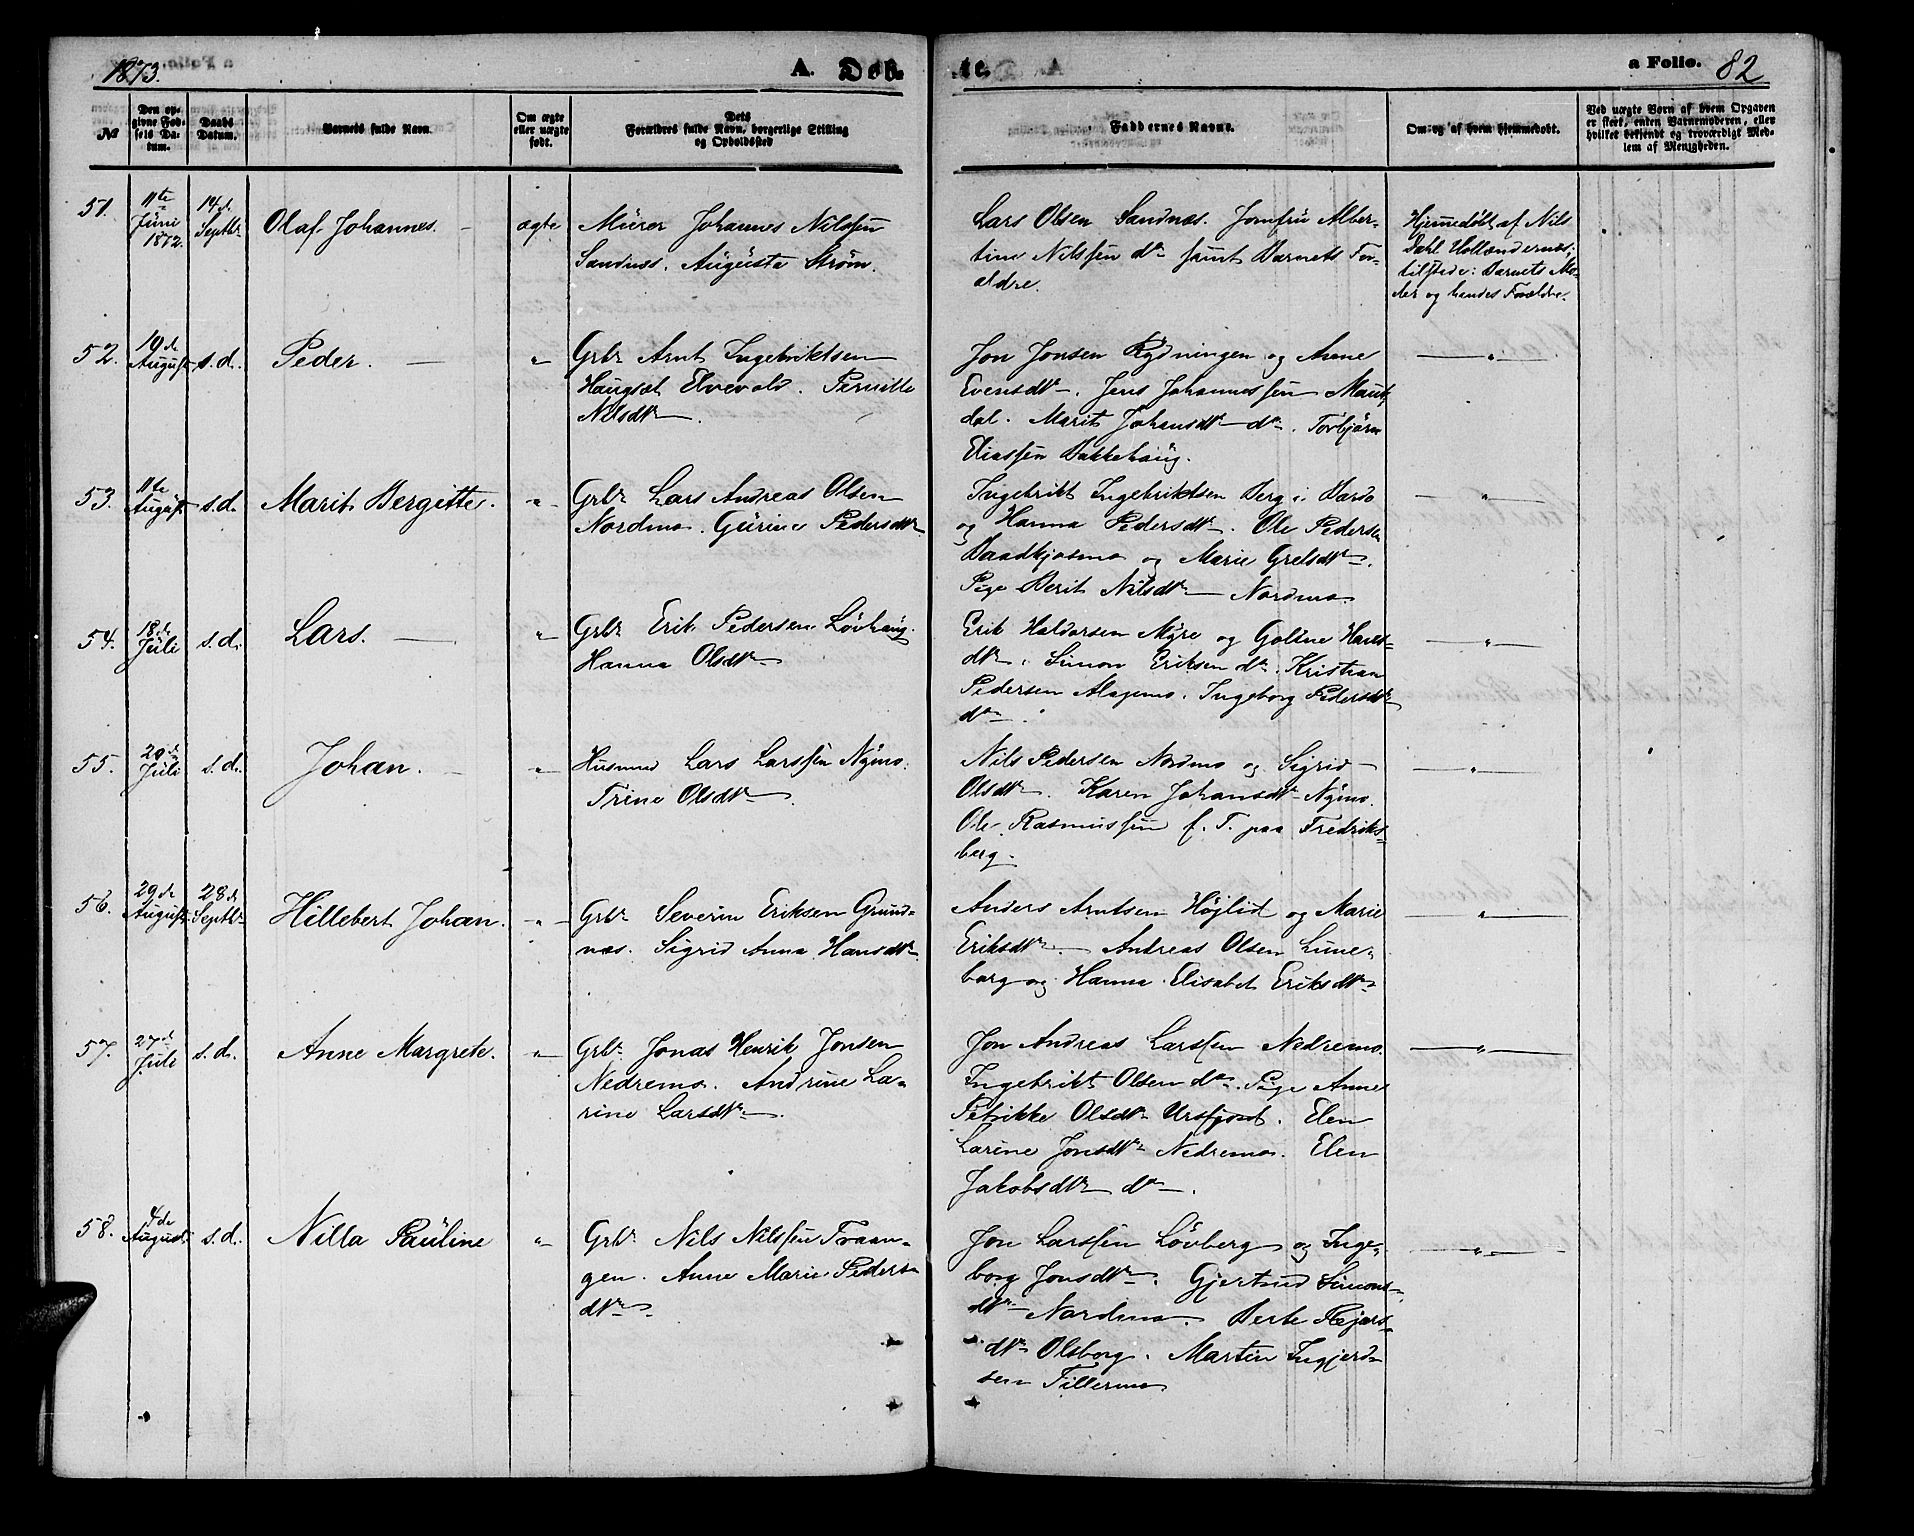 1873.
A. Døb-
te.
a Folio. 82
№
Den op-
givne Fød-
sels Da-
tum.
Daabs
Datum.
Barnets fulde Navn.
Om ægte
eller uægte
født.
Dets
Forældres fulde Navn, borgerlige Stilling
og Opholdssted
Faddernes Navne.
Om og af hvem hjemmedøbt.
Ved uægte Børn af hvem Opgaven
er skeet, enten Barnemoderen, eller
hvilket bekjendt og troværdigt Med-
lem af Menigheden.
51.
11te
Juni
1872.
14d.
Septbr
Olaf Johannes.
ægte
Murer Johannes Nilssen
Sandnes. Augusta Strøm.
Lars Olsen Sandnæs. Jomfru Alber-
tine Nilssen do samt Barnets For-
ældre.
Hjemmedøbt af Nils
Dahl Hollændernæs;
tilstede: Barnets Mo-
der og hendes Forældre.
52.
19de
August
s.d.
Peder.
"
Grbr Arnt Ingebriktsen
Haugset Elvevold. Pernille
Nilsdtr
Jon Jonsen Rydningen og Anne
Evensdtr. Jens Johannessen Maut-
dal. Marit Johansdtr do. Torbjørn
Eliassen Bakkehaug.
"
53.
11te
August
s.d.
Marit Bergitte.
"
Grbr Lars Andreas Olsen
Nordmo. Gurine Pedersdtr
Ingebrikt Ingebriktsen Berg i Bardo
og Hanna Pedersdtr. Ole Pedersen
Baadkjosmo og Marie Grelsdtr.
Pige Berit Nilsdtr Nordmo.
"
54.
18de
Juli
s.d.
Lars.
"
Grbr Erik Pedersen Løvhaug.
Hanna Olsdtr
Erik Haldorsen Myre og Goline Hans-
dtr. Simon Eriksen do. Kristian
Pedersen Alapmo. Ingeborg Pedersdtr
do.
"
55.
29de
Juli
s.d.
Johan.
"
Husmd Lars Larssen Nymo.
Trine Olsdtr.
Nils Pedersen Nordmo og Sigrid
Olsdtr. Karen Johansdtr Nymo.
Ole Rasmussen f. T. paa Fredriks-
berg.
"
56.
29de
August
28de
Septbr
Hillebert Johan.
"
Grbr Severin Eriksen Grund-
næs. Sigrid Anna Hansdtr
Anders Arntsen Højlid og Marie
Eriksdtr. Andreas Olsen Lune-
borg og Hanna Elisabet Eriksdtr
"
57.
27de
Juli
s.d.
Anne Margrete.
"
Grbr Jonas Henrik Jonsen
Nedremo. Andrine La-
rine Larsdtr.
Jon Andreas Larssen Nedremo.
Ingebrikt Olsen do. Pige Anne
Petrikke Olsdtr Ursfjord. Elen
Larine Jonsdtr Nedremo. Elen
Jakobsdtr do.
"
58.
4de
August
s.d.
Nilla Pauline
"
Grbr Nils Nilssen Fraan-
gen. Anne Marie Peders-
dtr
Jon Larssen Løvberg og Inge-
borg Jonsdtr. Gjertrud Simons-
dtr Nordmo. Berte Pejers-
dtr Olsborg. Martin Ingjerd-
sen Tillermo
"